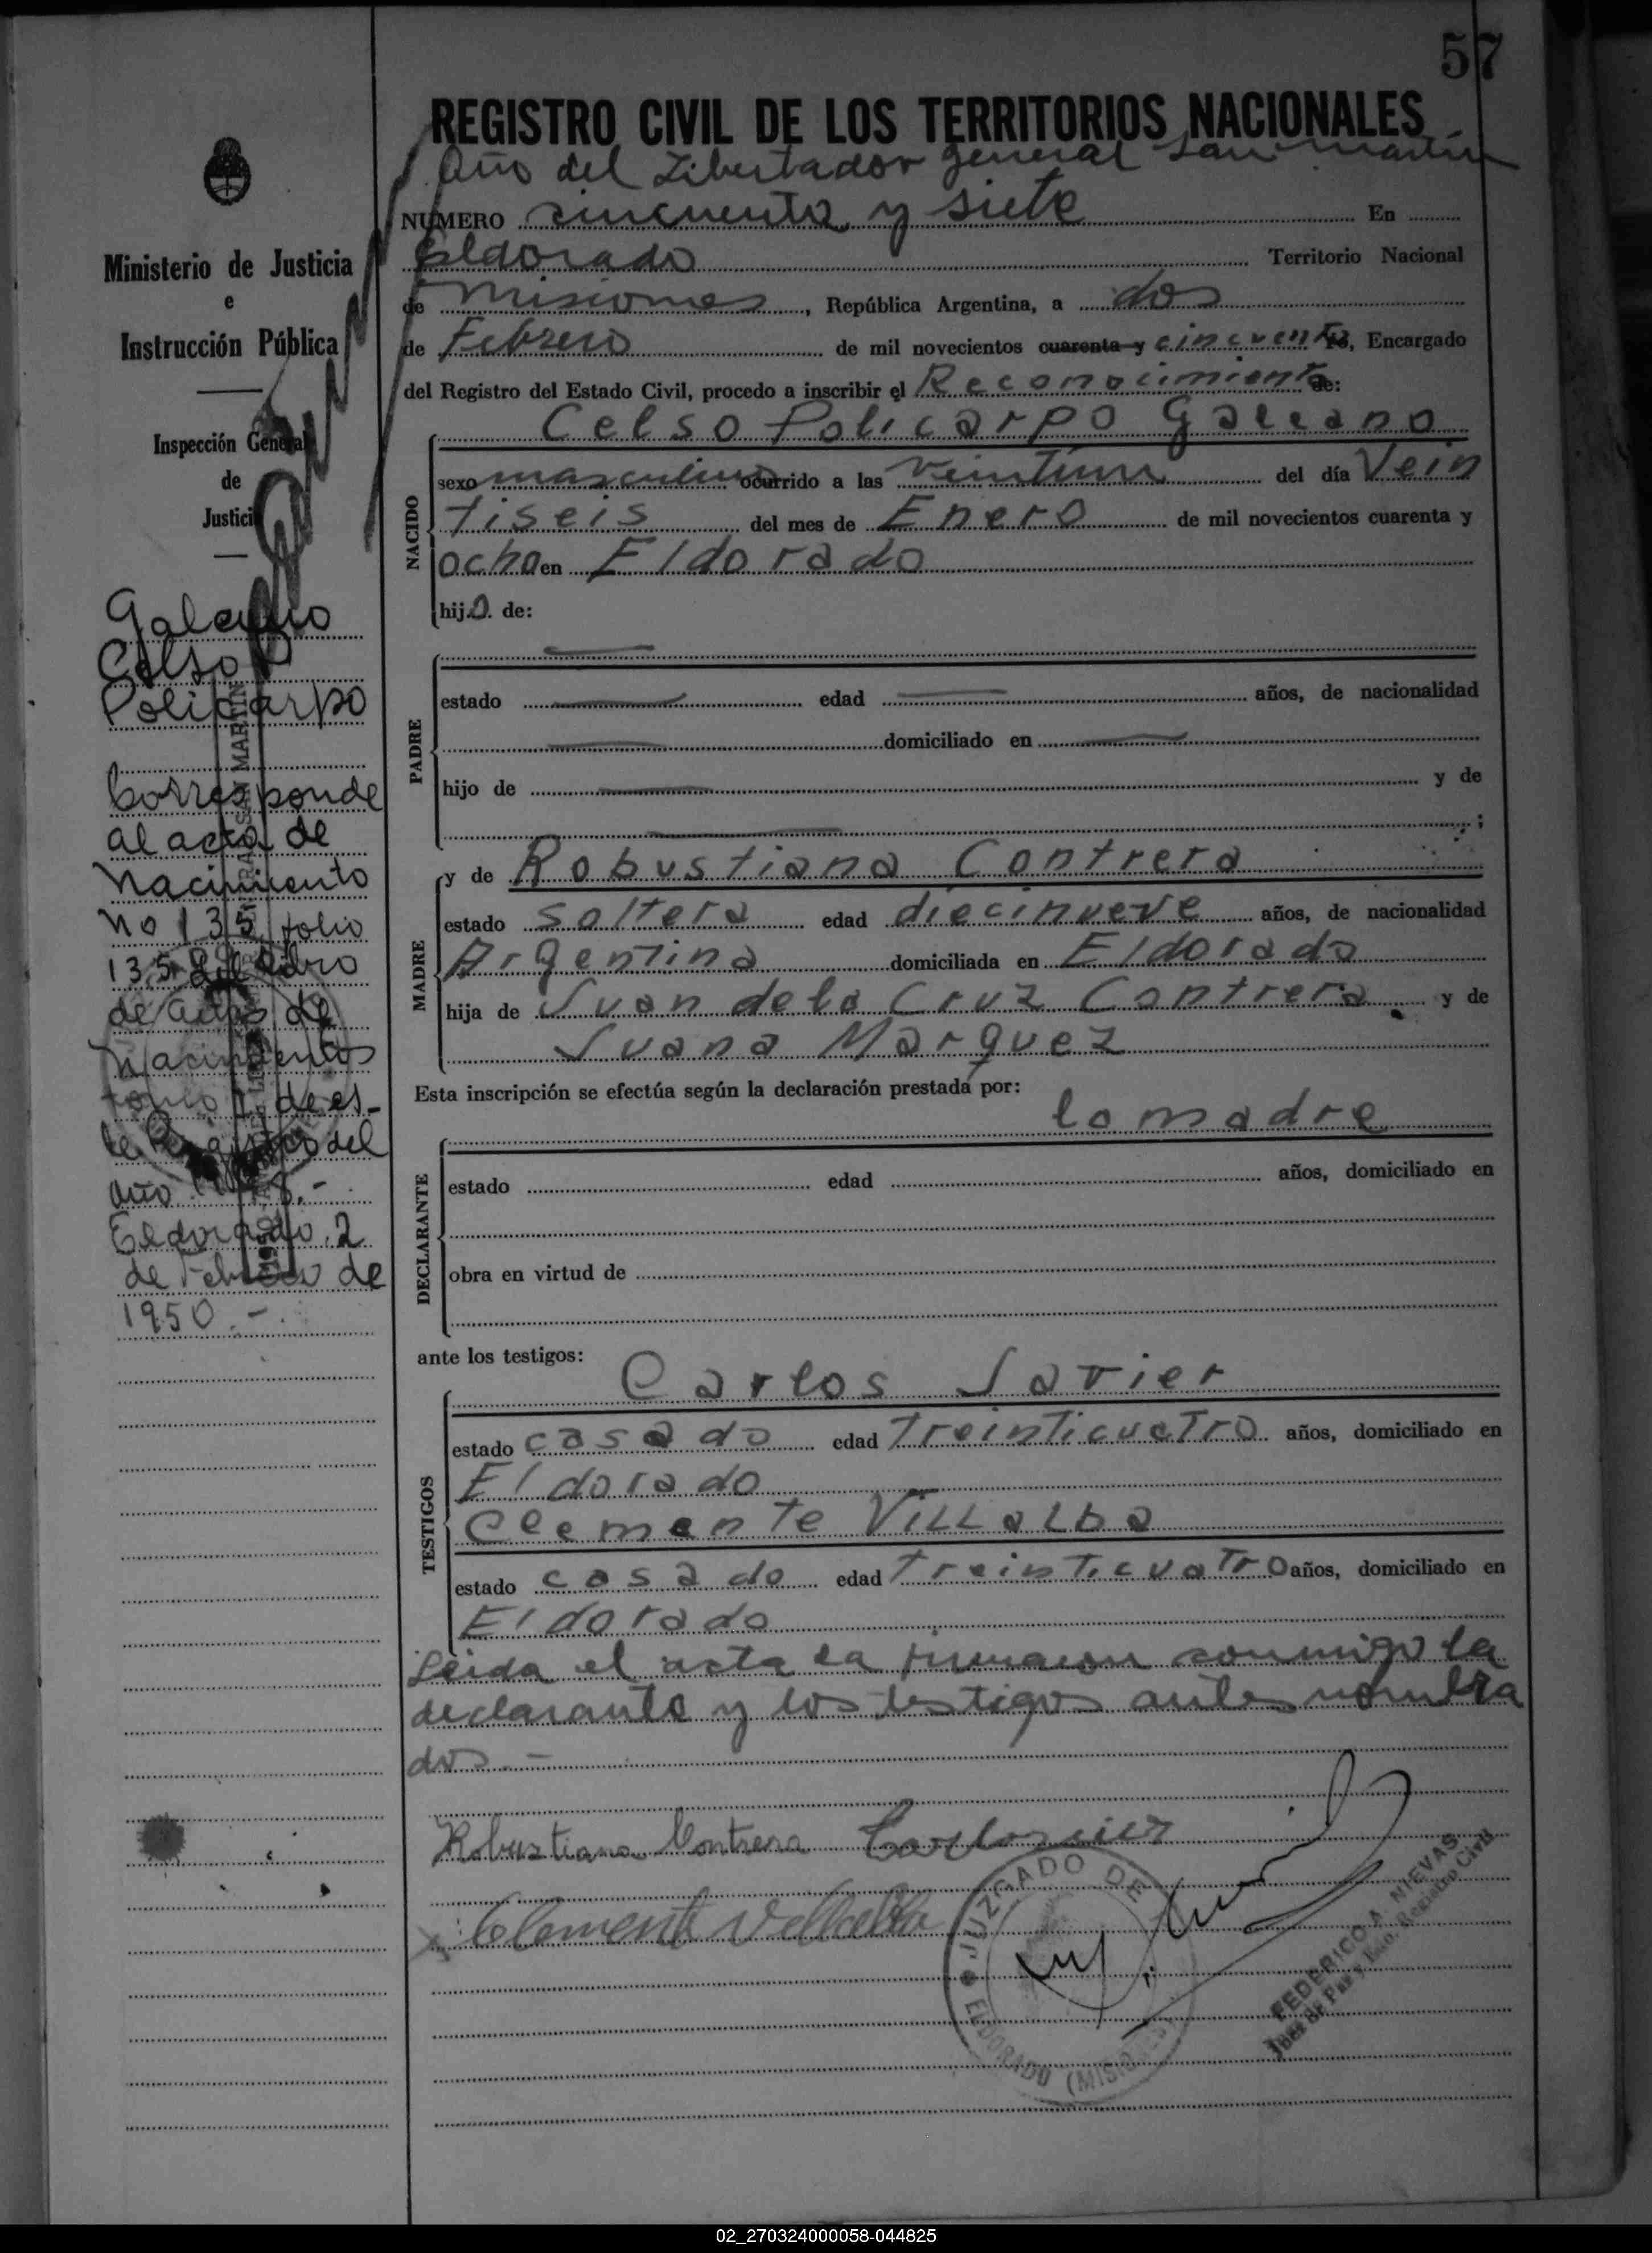 57
REGISTRO CIVIL DE LOS TERRITORIOS NACIONALES
Año del Libertador general San Martin
NUMERO cincuenta y siete En
Eldorado Territorio Nacional
de Misiones, República Argentina, a dos
de Febrero de mil novecientos cuarenta y cincuenta, Encargado
del Registro del Estado Civil, procedo a inscribir el Reconocimiento de:
Celso Policarpo Galeano
NACIDO
sexo masculino ocurrido a las veintiuna del día Vein
tiseis del mes de Enero de mil novecientos cuarenta y
ocho en Eldorado
hijo de:
PADRE
estado edad años, de nacionalidad
domiciliado en
hijo de y de
;
MADRE
y de Robustiana Contrera
estado soltera edad diecinueve años, de nacionalidad
Argentina domiciliada en Eldorado
hija de Juan dela Cruz Contrera y de
Juana Marquez
Esta inscripción se efectúa según la declaración prestada por:
la madre
DECLARANTE
estado edad años, domiciliado en
obra en virtud de
ante los testigos:
TESTIGOS
Carlos Javier
estado casado edad treinticuatro años, domiciliado en
Eldorado
Clemente Villalba
estado casado edad treinticuatro años, domiciliado en
Eldorado
Leida el acta la firmaron conmigo la
declarante y los testigos antes nombra
dos.-
Robustiana Contrera
Clemente Villalba
JUZGADO DE
ELDORADO (MISIONES)
FEDERICO A. NIEVAS
Juez de Paz y Enc. Registro Civil
Ministerio de Justicia
e
Instrucción Pública
Inspección General
de
Justicia
Galeano
Celso
Policarpo
Corresponde
al acta de
Nacimiento
No 135 folio
135 del libro
de actas de
Nacimientos
tomo I, de es-
te Registro del
Año 1948.-
Eldorado, 2
de Febrero de
1950.-
02_270324000058-044825